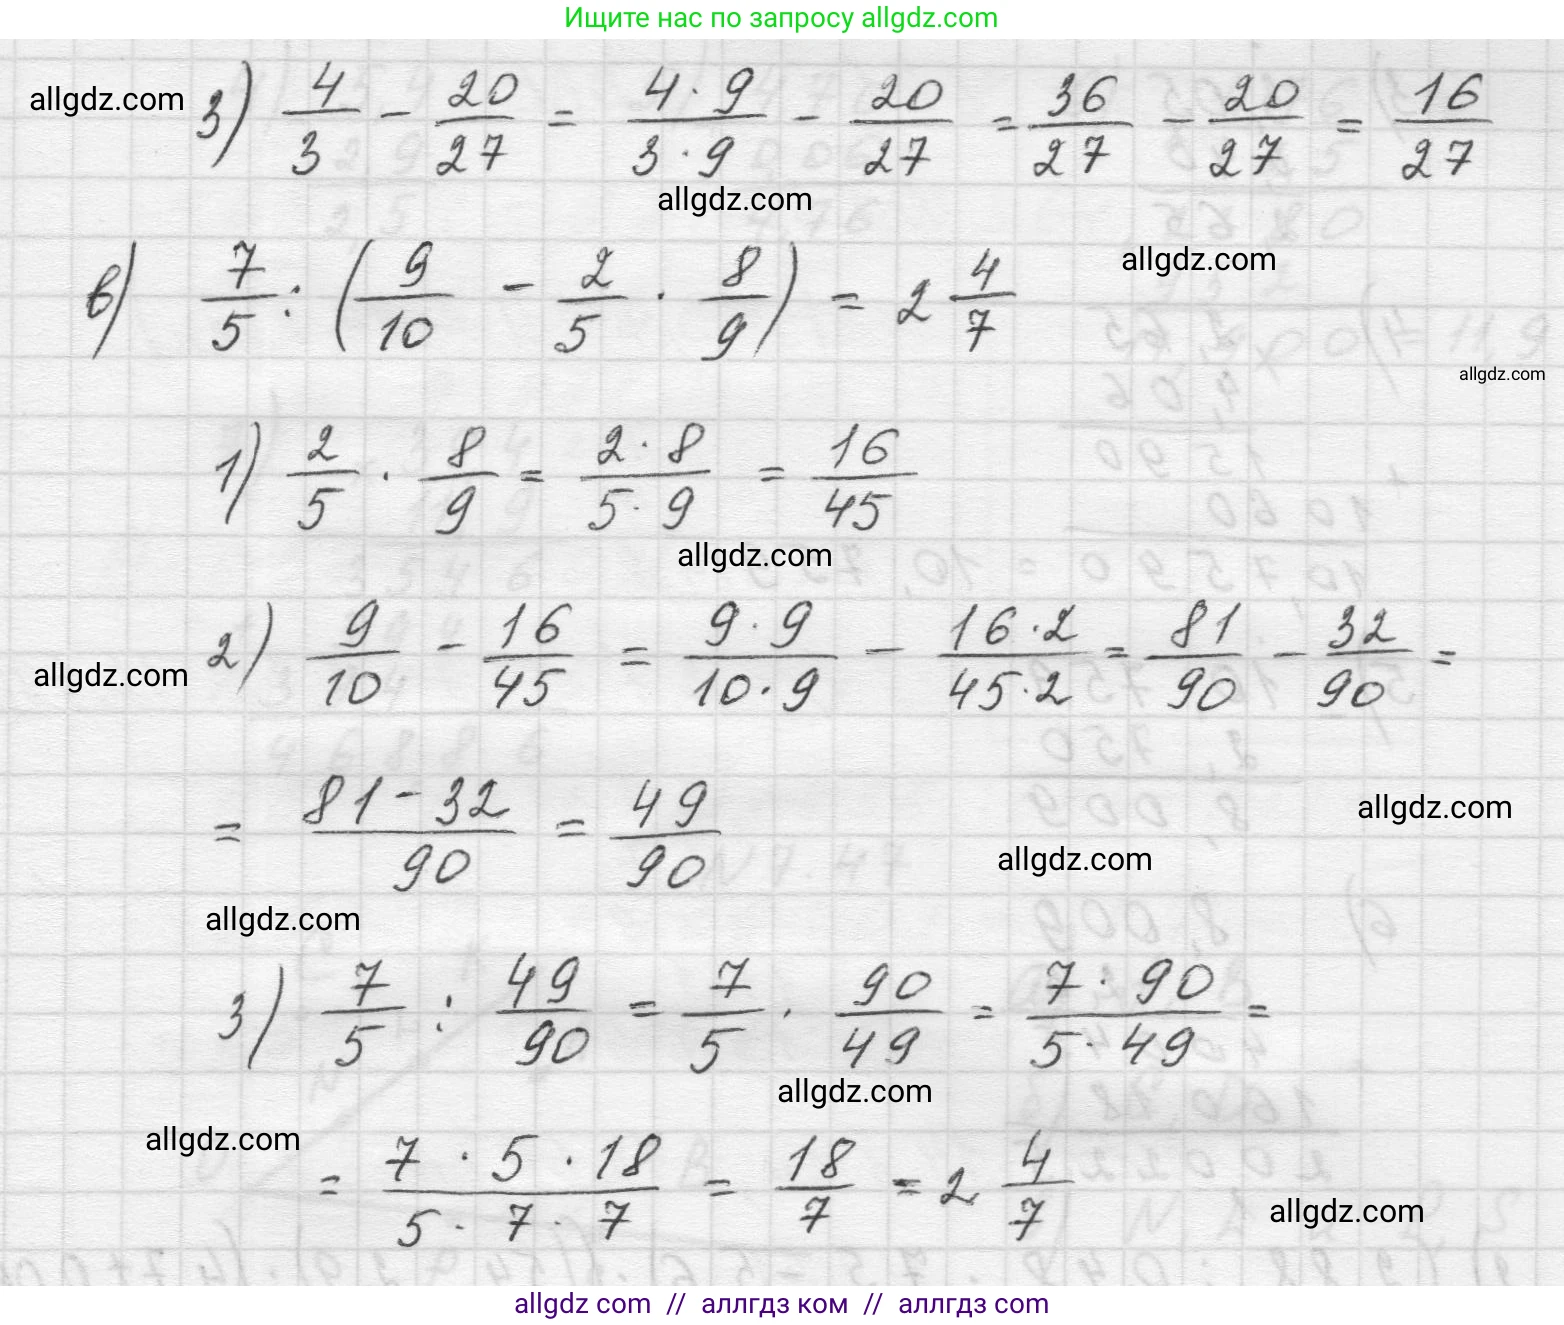 Ищите нас по запросу allgdz.com
allgdz.com
3) 4/3 - 20/27 = 4·9/3·9 - 20/27 = 36/27 - 20/27 = 16/27
allgdz.com
в) 7/5 : (9/10 - 2/5 · 8/9) = 2 4/7
allgdz.com
allgdz.com
1) 2/5 · 8/9 = 2·8/5·9 = 16/45
allgdz.com
2) 9/10 - 16/45 = 9·9/10·9 - 16·2/45·2 = 81/90 - 32/90 =
allgdz.com
= 81-32/90 = 49/90
allgdz.com
allgdz.com
allgdz.com
3) 7/5 : 49/90 = 7/5 · 90/49 = 7·90/5·49 =
allgdz.com
allgdz.com
= 7·5·18/5·7·7 = 18/7 = 2 4/7
allgdz.com
allgdz com // аллгдз ком // аллгдз com